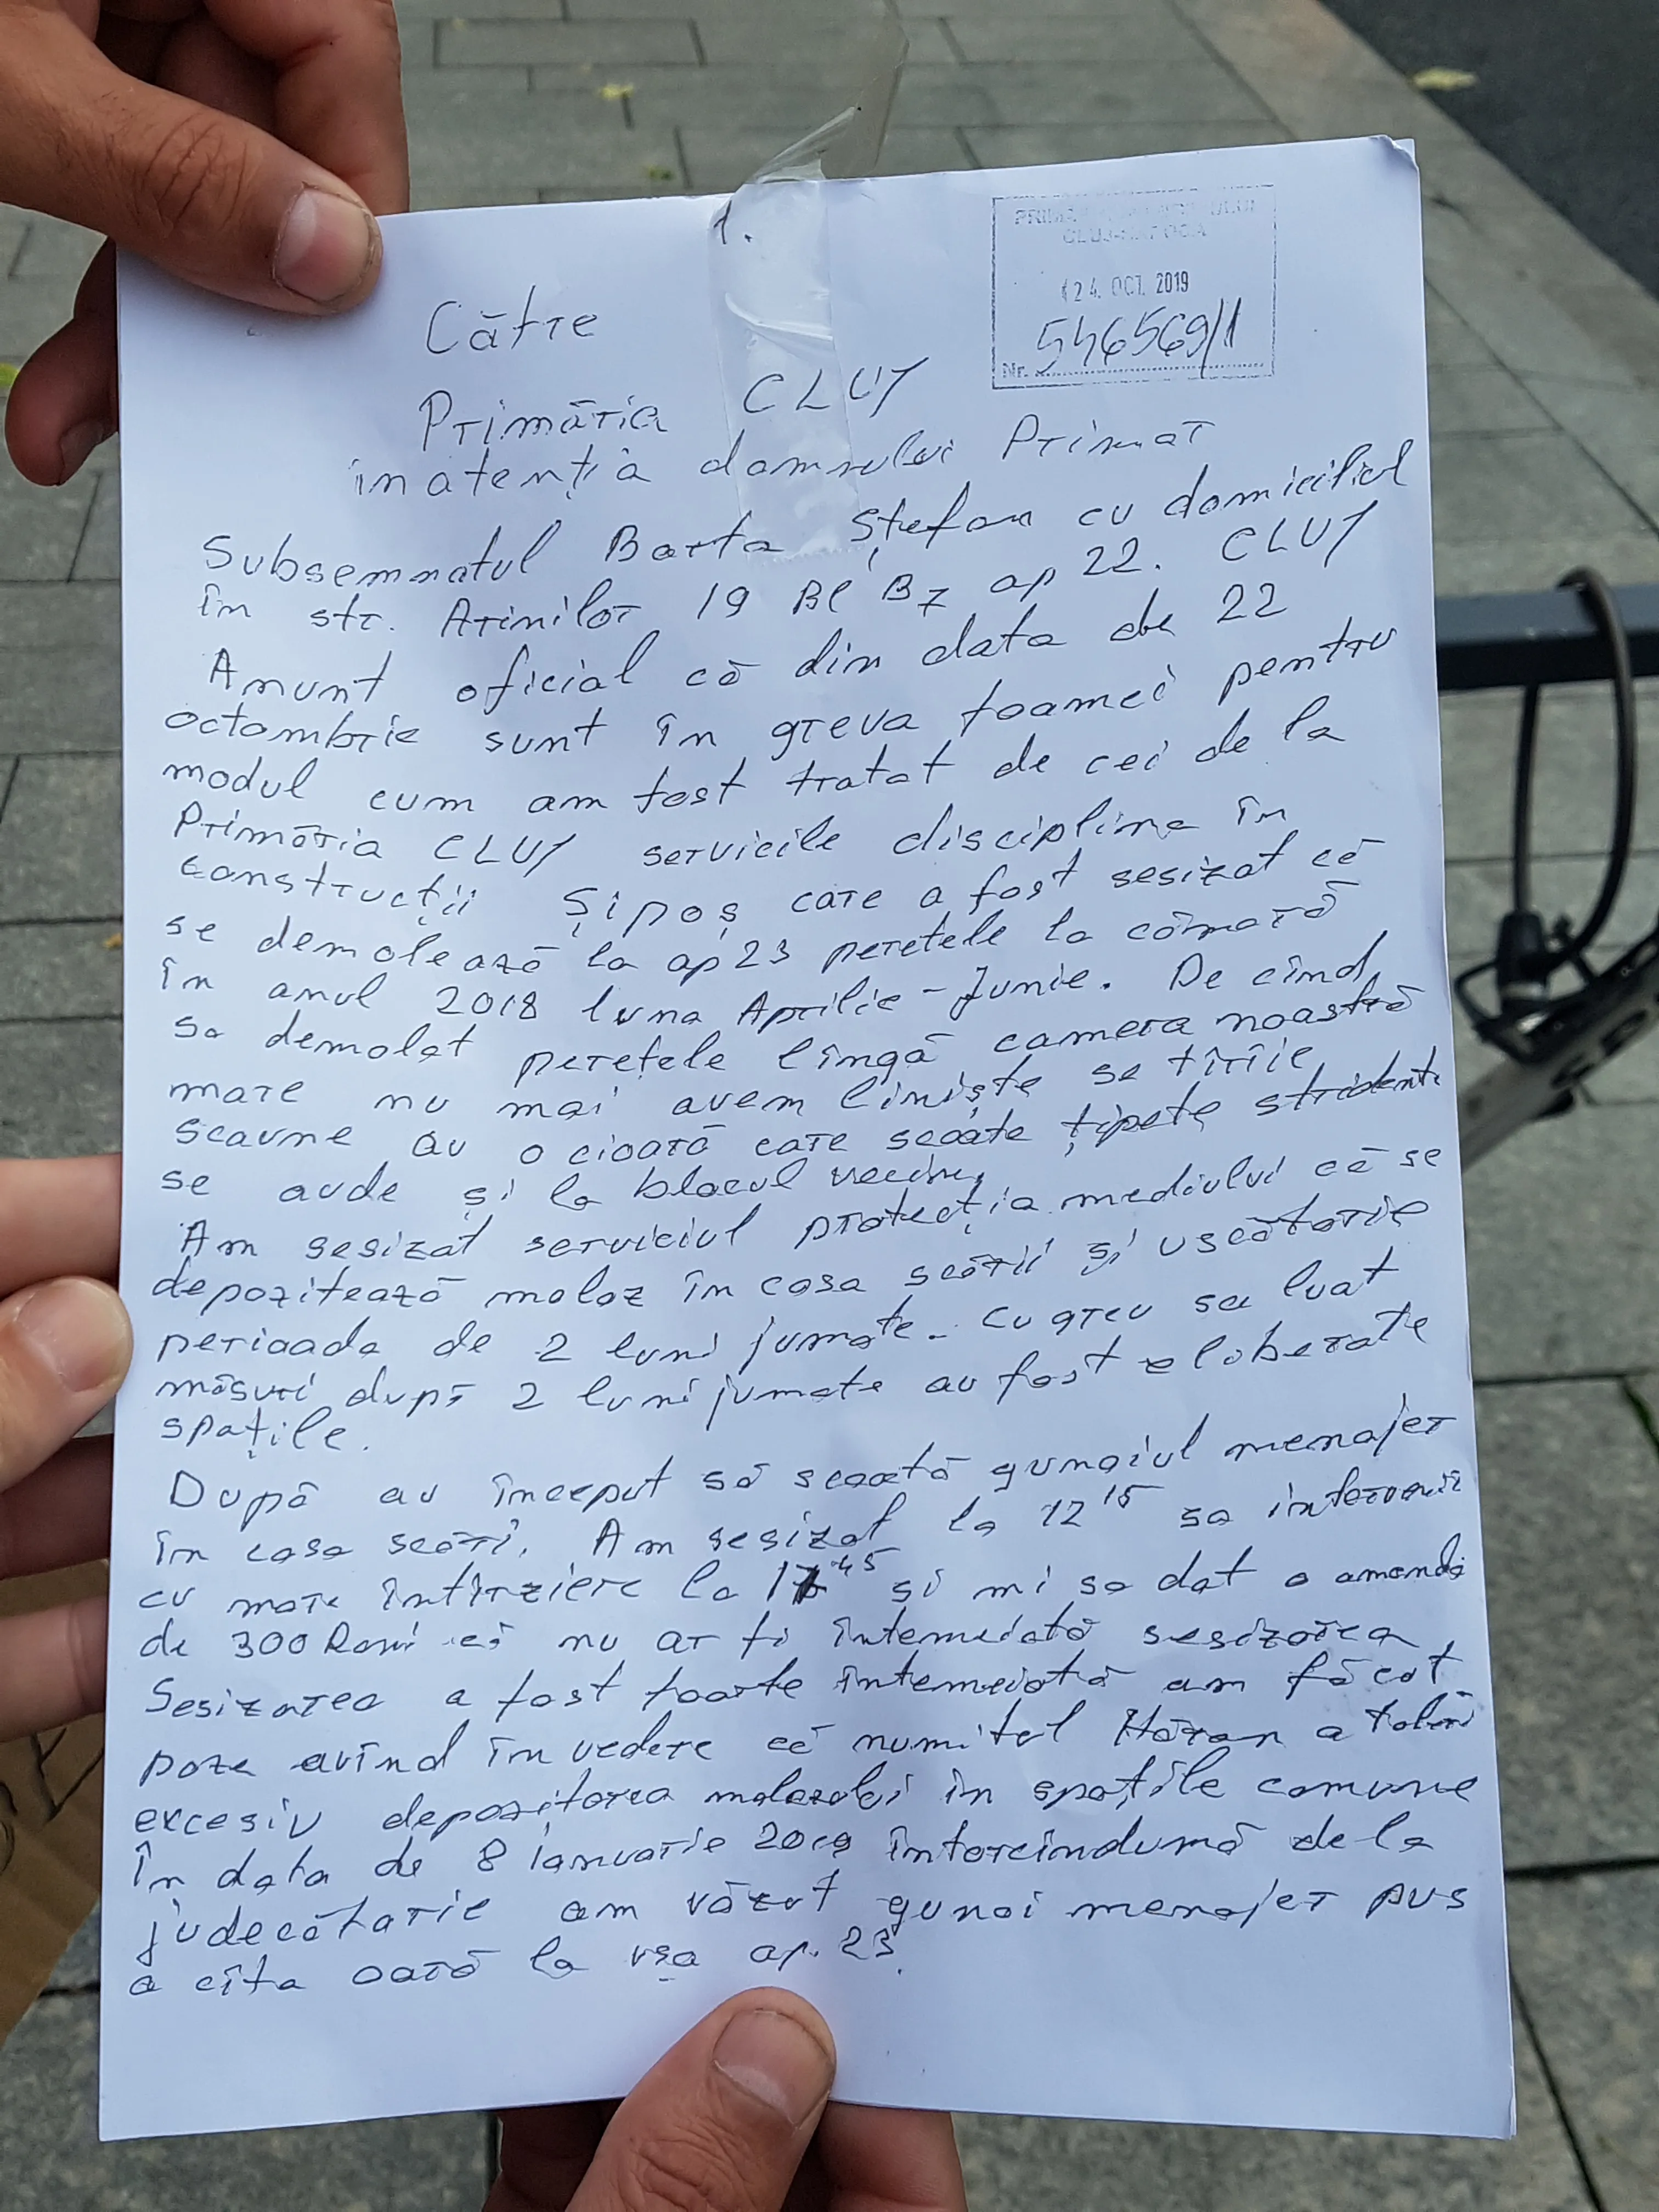 1.
PRIMĂRIA MUNICIPIULUI
CLUJ-NAPOCA
24. OCT. 2019
Nr. 546569/1
Către
Primăria CLUJ
în atenția domnului Primar
Subsemnatul Barta Ștefan cu domiciliul
în str. Arinilor 19 Bl B7 ap 22. CLUJ
Anunt oficial că din data de 22
octombrie sunt în greva foamei pentru
modul cum am fost tratat de cei de la
Primăria CLUJ serviciile disciplina în
construcții Șipoș care a fost sesizat că
se demolează la ap 23 peretele la cămară
în anul 2018 luna Aprilie - Junie. De cînd
sa demolat peretele lîngă camera noastră
mare nu mai avem liniște se tîrîie
scaune au o cioară care scoate țipete stridente
se aude și la blocul vecin,
Am sesizat serviciul protecția mediului că se
depozitează moloz în casa scării și uscătorie
perioada de 2 luni jumate. Cu greu sa luat
măsuri după 2 luni jumate au fost eloberate
spațile.
După au început să scoată gunoiul menajer
în casa scări. Am sesizat la 12 15 sa intervenit
cu mare întîrziere la 45 și mi sa dat o amendă
de 300 Roni că nu ar fi întemeiată sesizarea
Sesizarea a fost foarte întemeiată am făcut
poze avînd în vedere că numitul a
excesiv depozitarea molozului în spațile comune
În data de 8 ianuarie 2019 întorcîndumă de la
judecătorie am văzut gunoi menajer pus
a cîta oară la ușa ap. 23.